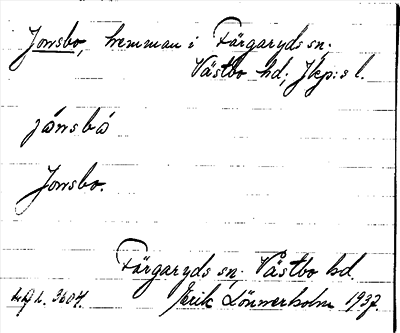 Jonsbo, hemman i Färgaryds sn.
Västbo hd; Jkp:s l.
jɷnsbɷ
Jonsbo.
Färgaryds sn. Västbo hd.
Erik Lönnerholm 1937.